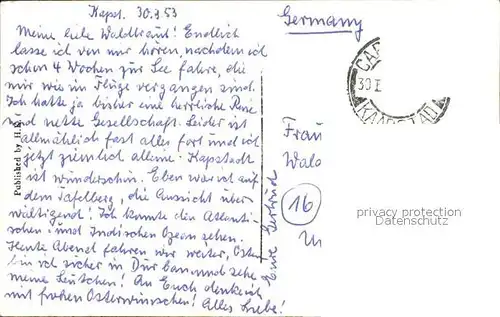 Kapst. 30.3.53
Meine liebe Waldtraut! Endlich
lasse ich von mir hören, nachdem ich
schon 4 Wochen zur See fahre, die
mir wie im Fluge vergangen sind.
Ich hatte ja bisher eine herrliche Reise
und nette Gesellschaft. Leider ist
allmählich fast alles fort und ich
jetzt ziemlich allein. Kapstadt
ist wunderschön. Eben war ich auf
dem Tafelberg, die Aussicht über
wältigend! Ich konnte den Atlanti-
schen und Indischen Ozean sehen.
Heute Abend fahren wir weiter, Ostern
bin ich sicher in Durban und sehe
meine Leutchen! An Euch denke ich
mit frohen Osterwünschen! Alles Liebe!
Eure Gertrud
Published by H.
Germany
30 I
KAAPSTAD
Frau
16
privacy protection
Datenschutz